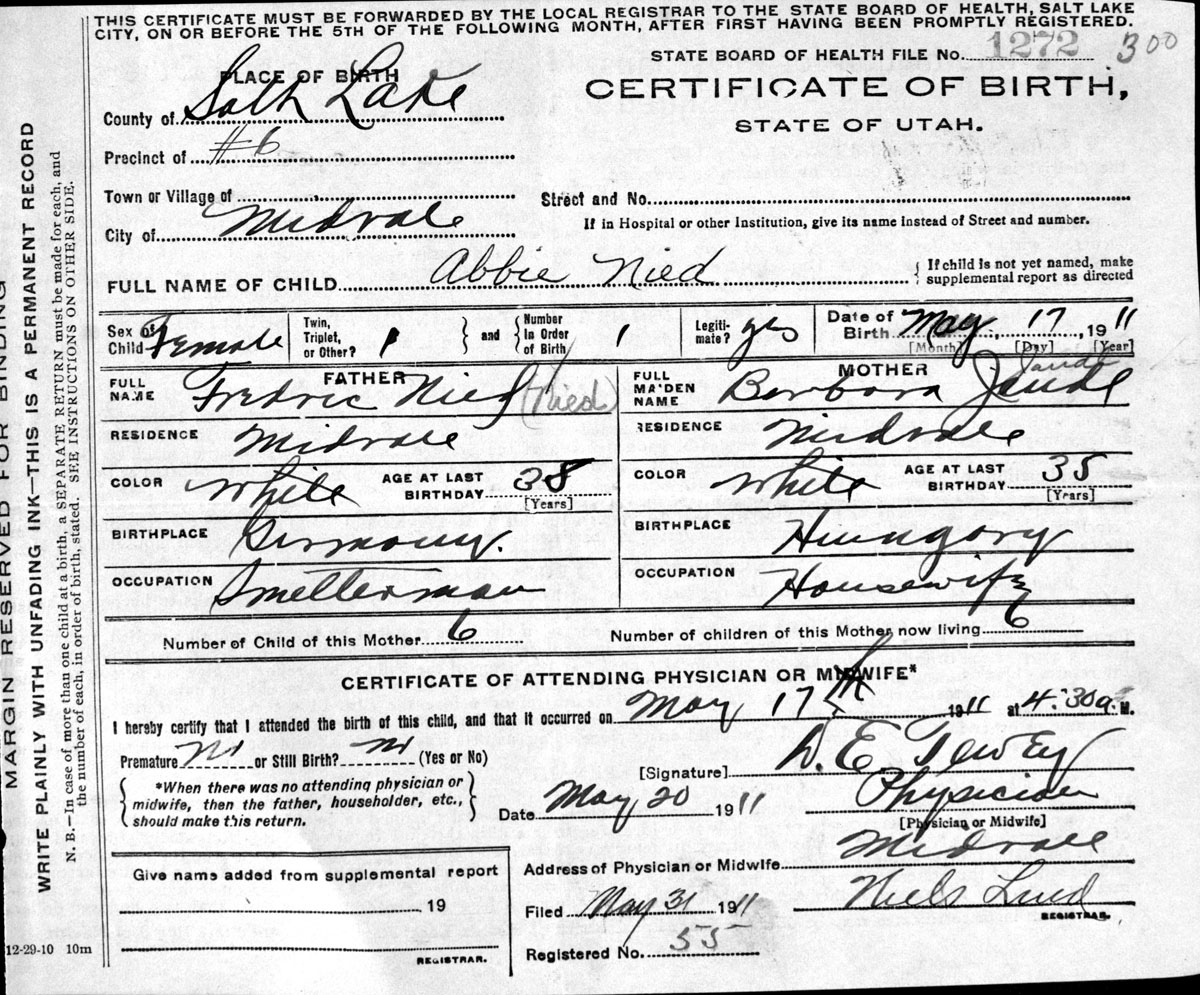 THIS CERTIFICATE MUST BE FORWARDED BY THE LOCAL REGISTRAR TO THE STATE BOARD OF HEALTH, SALT LAKE
CITY, ON OR BEFORE THE 5TH OF THE FOLLOWING MONTH, AFTER FIRST HAVING BEEN PROMPTLY REGISTERED.
STATE BOARD OF HEALTH FILE No. 1272 300
PLACE OF BIRTH
CERTIFICATE OF BIRTH,
STATE OF UTAH.
County of Salt Lake
Precinct of #6
Town or Village of
Street and No.
City of Midvale
If in Hospital or other Institution, give its name instead of Street and number.
FULL NAME OF CHILD Abbie Nied
{ If child is not yet named, make
supplemental report as directed
Sex of Child Female
Twin, Triplet, or Other? 1 } and { Number In Order of Birth 1
Legiti-mate? yes
Date of Birth May 17, 1911
[Month] [Day] [Year]
FATHER
FULL NAME Fredric Nied (Nied)
RESIDENCE Midvale
COLOR White
AGE AT LAST BIRTHDAY 38 [Years]
BIRTHPLACE Germany.
OCCUPATION Smelterman
MOTHER
FULL MAIDEN NAME Barbara
RESIDENCE Midvale
COLOR White
AGE AT LAST BIRTHDAY 35 [Years]
BIRTHPLACE Hungary
OCCUPATION Housewife
Number of Child of this Mother 6
Number of children of this Mother now living 6
CERTIFICATE OF ATTENDING PHYSICIAN OR MIDWIFE*
I hereby certify that I attended the birth of this child, and that it occurred on May 17th 1911 at 4:30 a. M.
Premature No or Still Birth? No (Yes or No)
[Signature] D. E.
*When there was no attending physician or
midwife, then the father, householder, etc.,
should make this return.
Date May 20 1911
Physician
[Physician or Midwife]
Address of Physician or Midwife Midvale
Give name added from supplemental report
19
REGISTRAR.
Filed May 31 1911
Niels Lind
REGISTRAR.
Registered No. 55
12-29-10 10m
MARGIN RESERVED FOR BINDING
WRITE PLAINLY WITH UNFADING INK—THIS IS A PERMANENT RECORD
N. B.—In case of more than one child at a birth, a SEPARATE RETURN must be made for each, and
the number of each, in order of birth, stated. SEE INSTRUCTIONS ON OTHER SIDE.